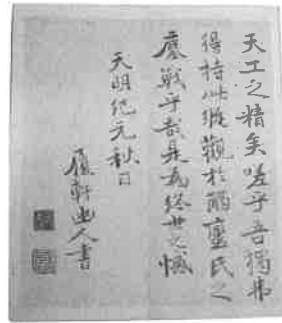 天工之精矣嗟乎吾獨弗
得持此縱觀於酣蠻氏之
鏖戰乎哉是為終世之憾
天明紀元秋日
履軒幽人書